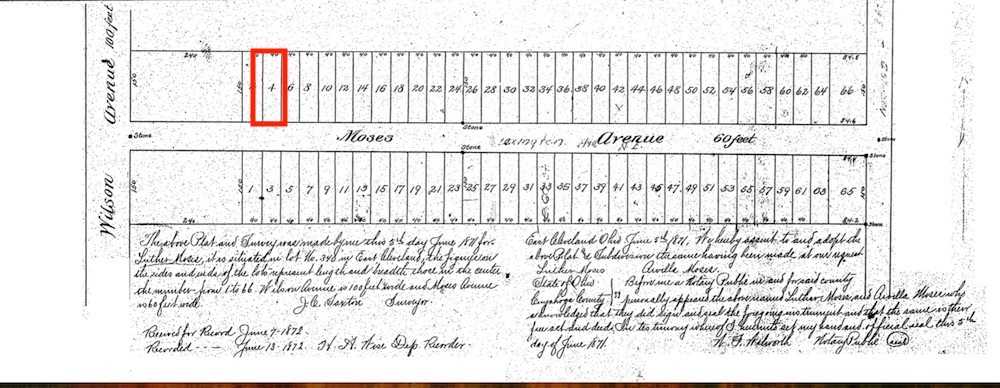 Wilson Avenue 100 feet
240 40 40 40 40 40 40 40 40 40 40 40 40 40 40 84.5
150 4 6 8 10 12 14 16 18 20 22 24 26 28 30 32 34 36 38 40 42 44 46 48 50 52 54 56 58 60 62 64 66 150
84.6
Stone Moses Stone Avenue 60 feet Stone
Stone Lexington Ave N.E.
150 1 3 5 7 9 11 13 15 17 19 21 23 25 27 29 31 33 35 37 39 41 43 45 47 49 51 53 55 57 59 61 63 65 150
240 40 40 40 40 40 40 40 40 40 40 40 40 40 40 84.2 Stone
The above Plat and Survey was made by me this 5th day June 1871 for
Luther Moses, it is situated in lot No. 348 in East Cleveland, the figures on
the sides and ends of the lots represent length and breadth, those in the center
the number from 1 to 66. Wilson Avenue is 100 feet wide and Moses Avenue
is 60 feet wide. J.C. Saxton Surveyor.
Received for Record June 7 1872
Recorded - - June 13 1872 H. A. Wise Dep Recorder.
East Cleveland Ohio June 5th 1871. We hereby assent to and adopt the
above Plat & Subdivision the same having been made at our request
Luther Moses Arvilla Moses
State of Ohio } Before me a Notary Public in and for said county
Cuyahoga County } personally appeared the above named Luther Moses, and Arvilla Moses who
acknowledged that they did sign and seal the foregoing instrument and that the same is their
free act and deed. In testimony whereof I hereunto set my hand and official seal this 5th
day of June 1871. Notary Public seal